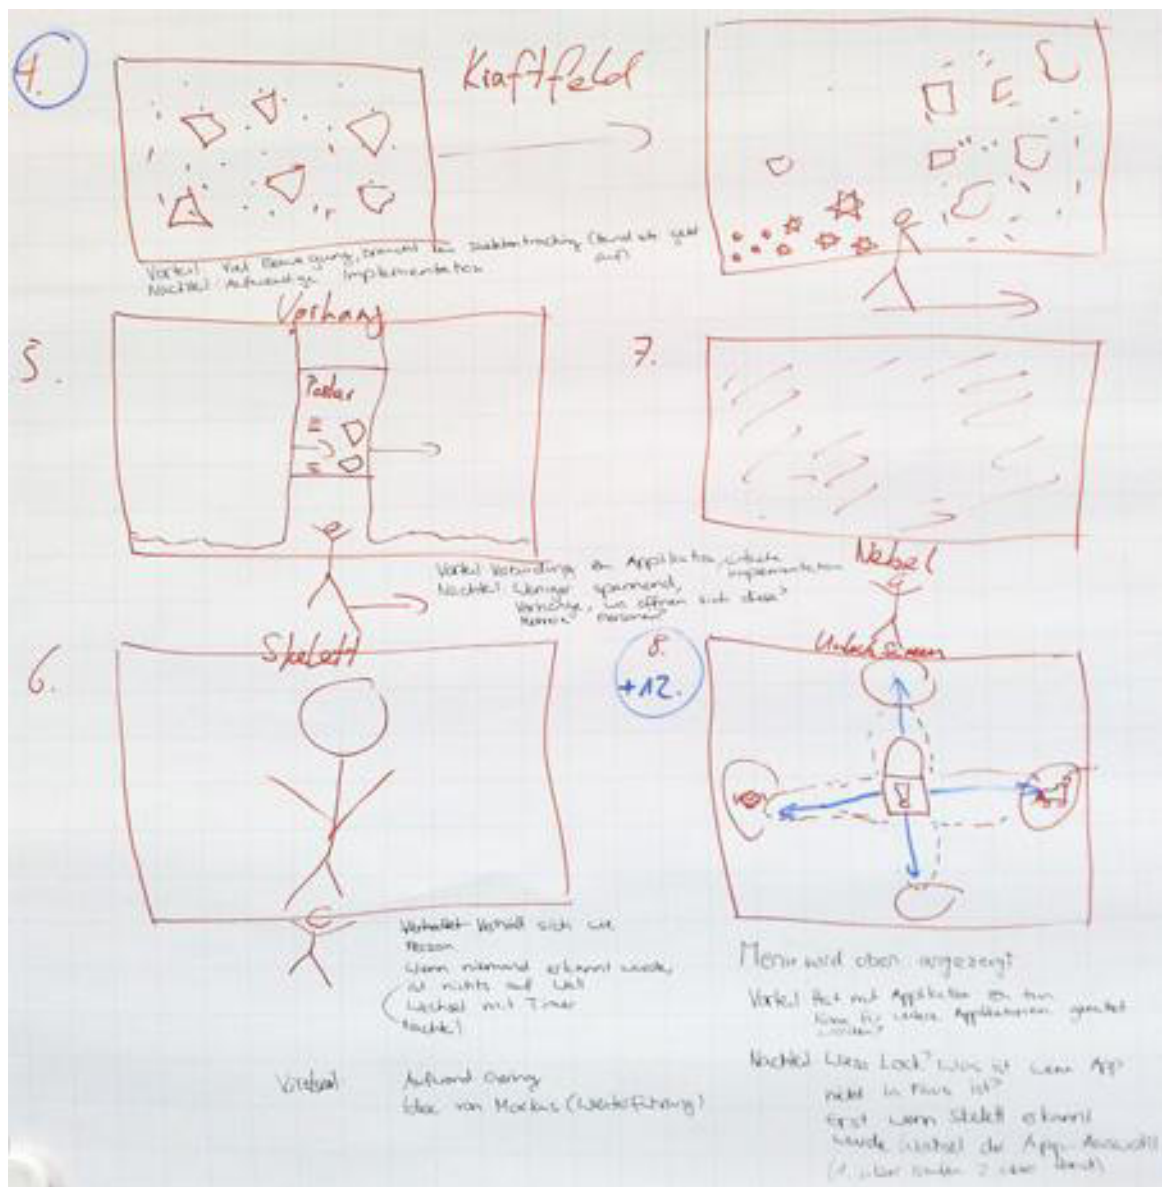 4.
Kraftfeld
Vorteil: Viel Bewegung, braucht kein Skeletontracking
Nachteil: Aufwendige Implementation
5.
Vorhang
Poster
Vorteil Verbindung zu Applikation, einfache
Implementation
Nachteil: Weniger spannend,
Vorhänge, wo öffnen sich diese?
Mehrere Personen?
7.
Nebel
6.
Skelett
Verhält sich wie
Person
Wenn niemand erkannt wurde,
ist nichts auf Wall
Wechsel mit Timer
Nachteil
Vorteil
Aufwand Gering
Idee von Markus (Weiterführung)
8.
+12.
Unlock Screen
Menu wird oben angezeigt
Vorteil Hat mit Applikation zu tun
Applikationen
werden?
Nachteil Wieso Lock? Was ist wenn App
nicht in Fokus ist?
Erst wenn Skelett erkannt
wurde wechsel der App-Auswahl